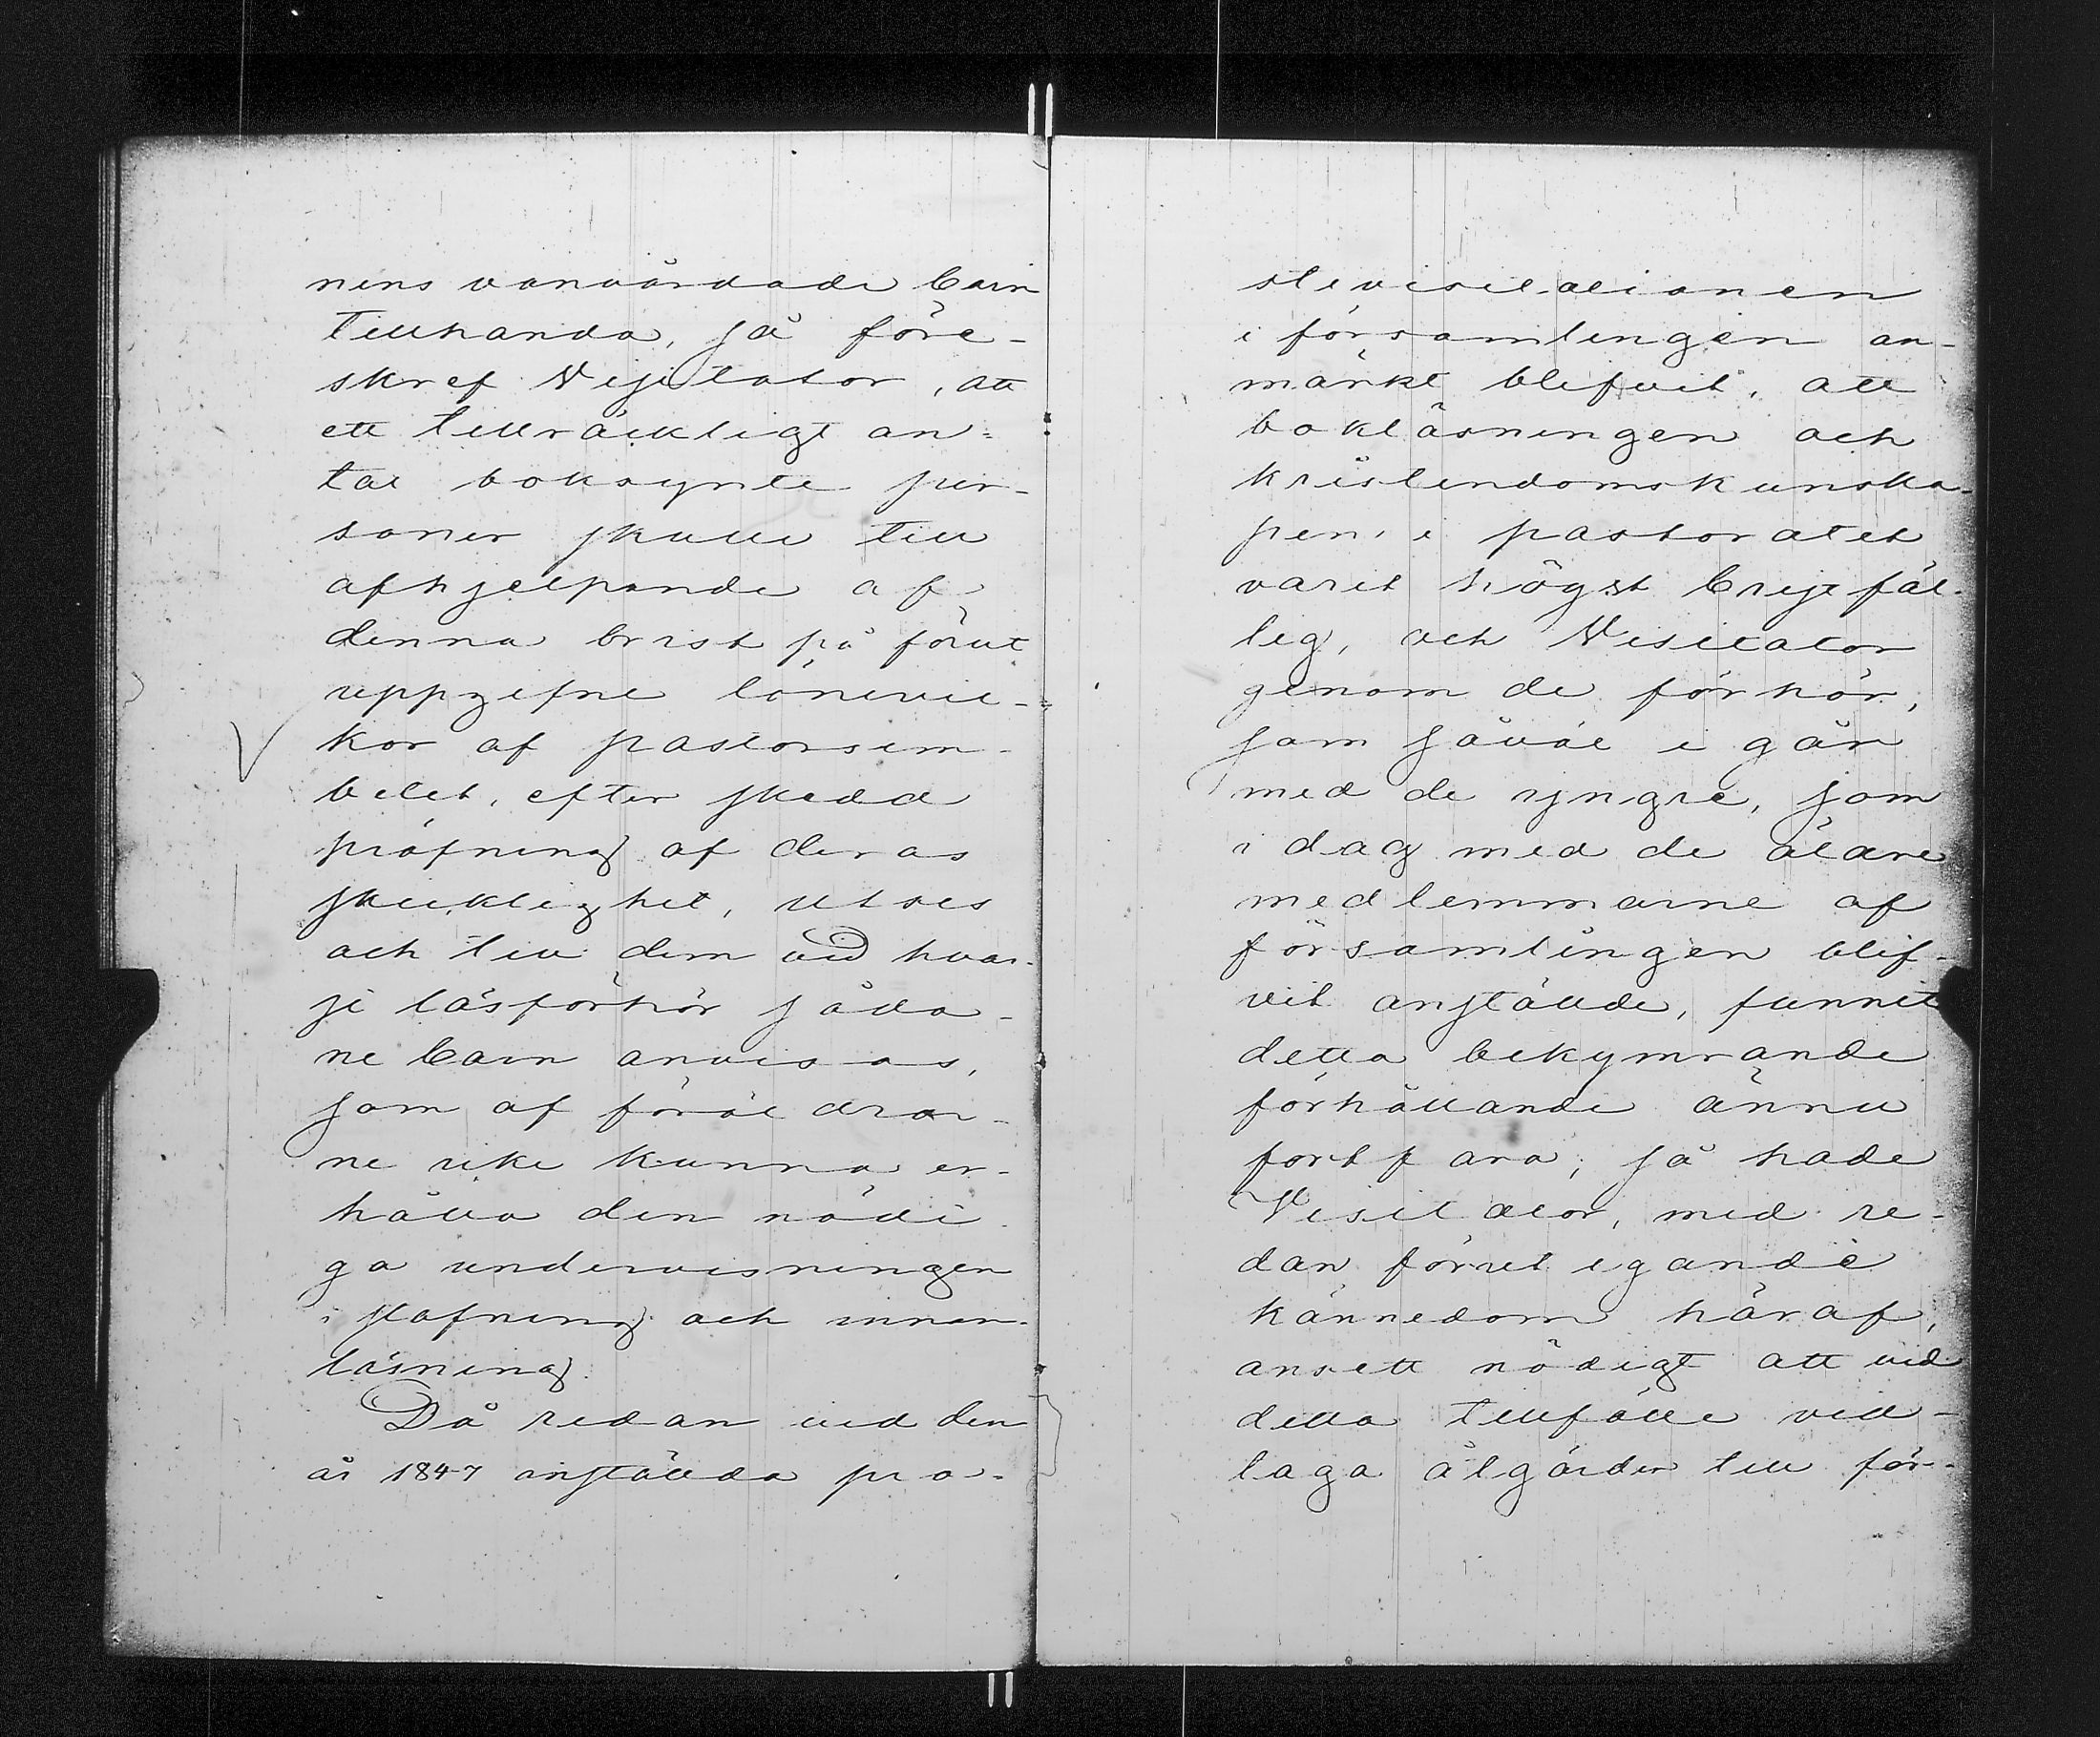 nens vanvårdade barn
tillhanda, så före-
skref Visitator, att
ett tillräckligt an-
tal boksynte per-
soner skulle till
afhjelpande af
denna brist på förut
uppgifne lönevil-
kor af pastorsem-
betet, efter skedd
pröfning af deras
skicklighet, utses
och till dem vid hvar-
je läsförhör såda-
ne barn anvisas,
som af föräldrar-
ne icke kunna er-
hålla den nödi-
ga undervisningen
i stafning och innan-
läsning.
Då redan vid den
år 1847 anställda pro-
stevisitationen
i församlingen an-
märkt blifvit, att
bokläsningen och
kristendomskunska-
pen i pastoratet
varit högst bristfäl-
lig, och Visitator
genom de förhör,
som såväl i går
med de yngre, som
i dag med de äldre
medlemmarne af
församlingen blif-
vit anställde, funnit
detta bekymrande
förhållande ännu
fortfara; så hade
Visitator, med re-
dan förut egande
kännedom häraf,
ansett nödigt att vid
detta tillfälle vid-
taga åtgärder till för-